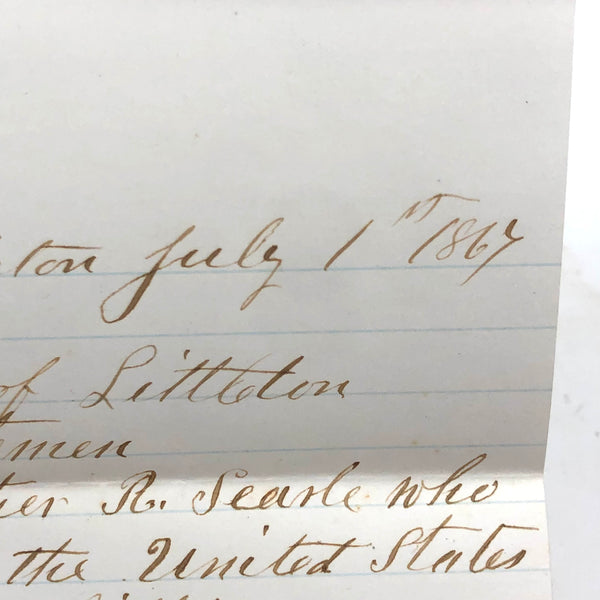 ton July 1st 1867
of Littleton
temen
ter R. Searle who
the United States